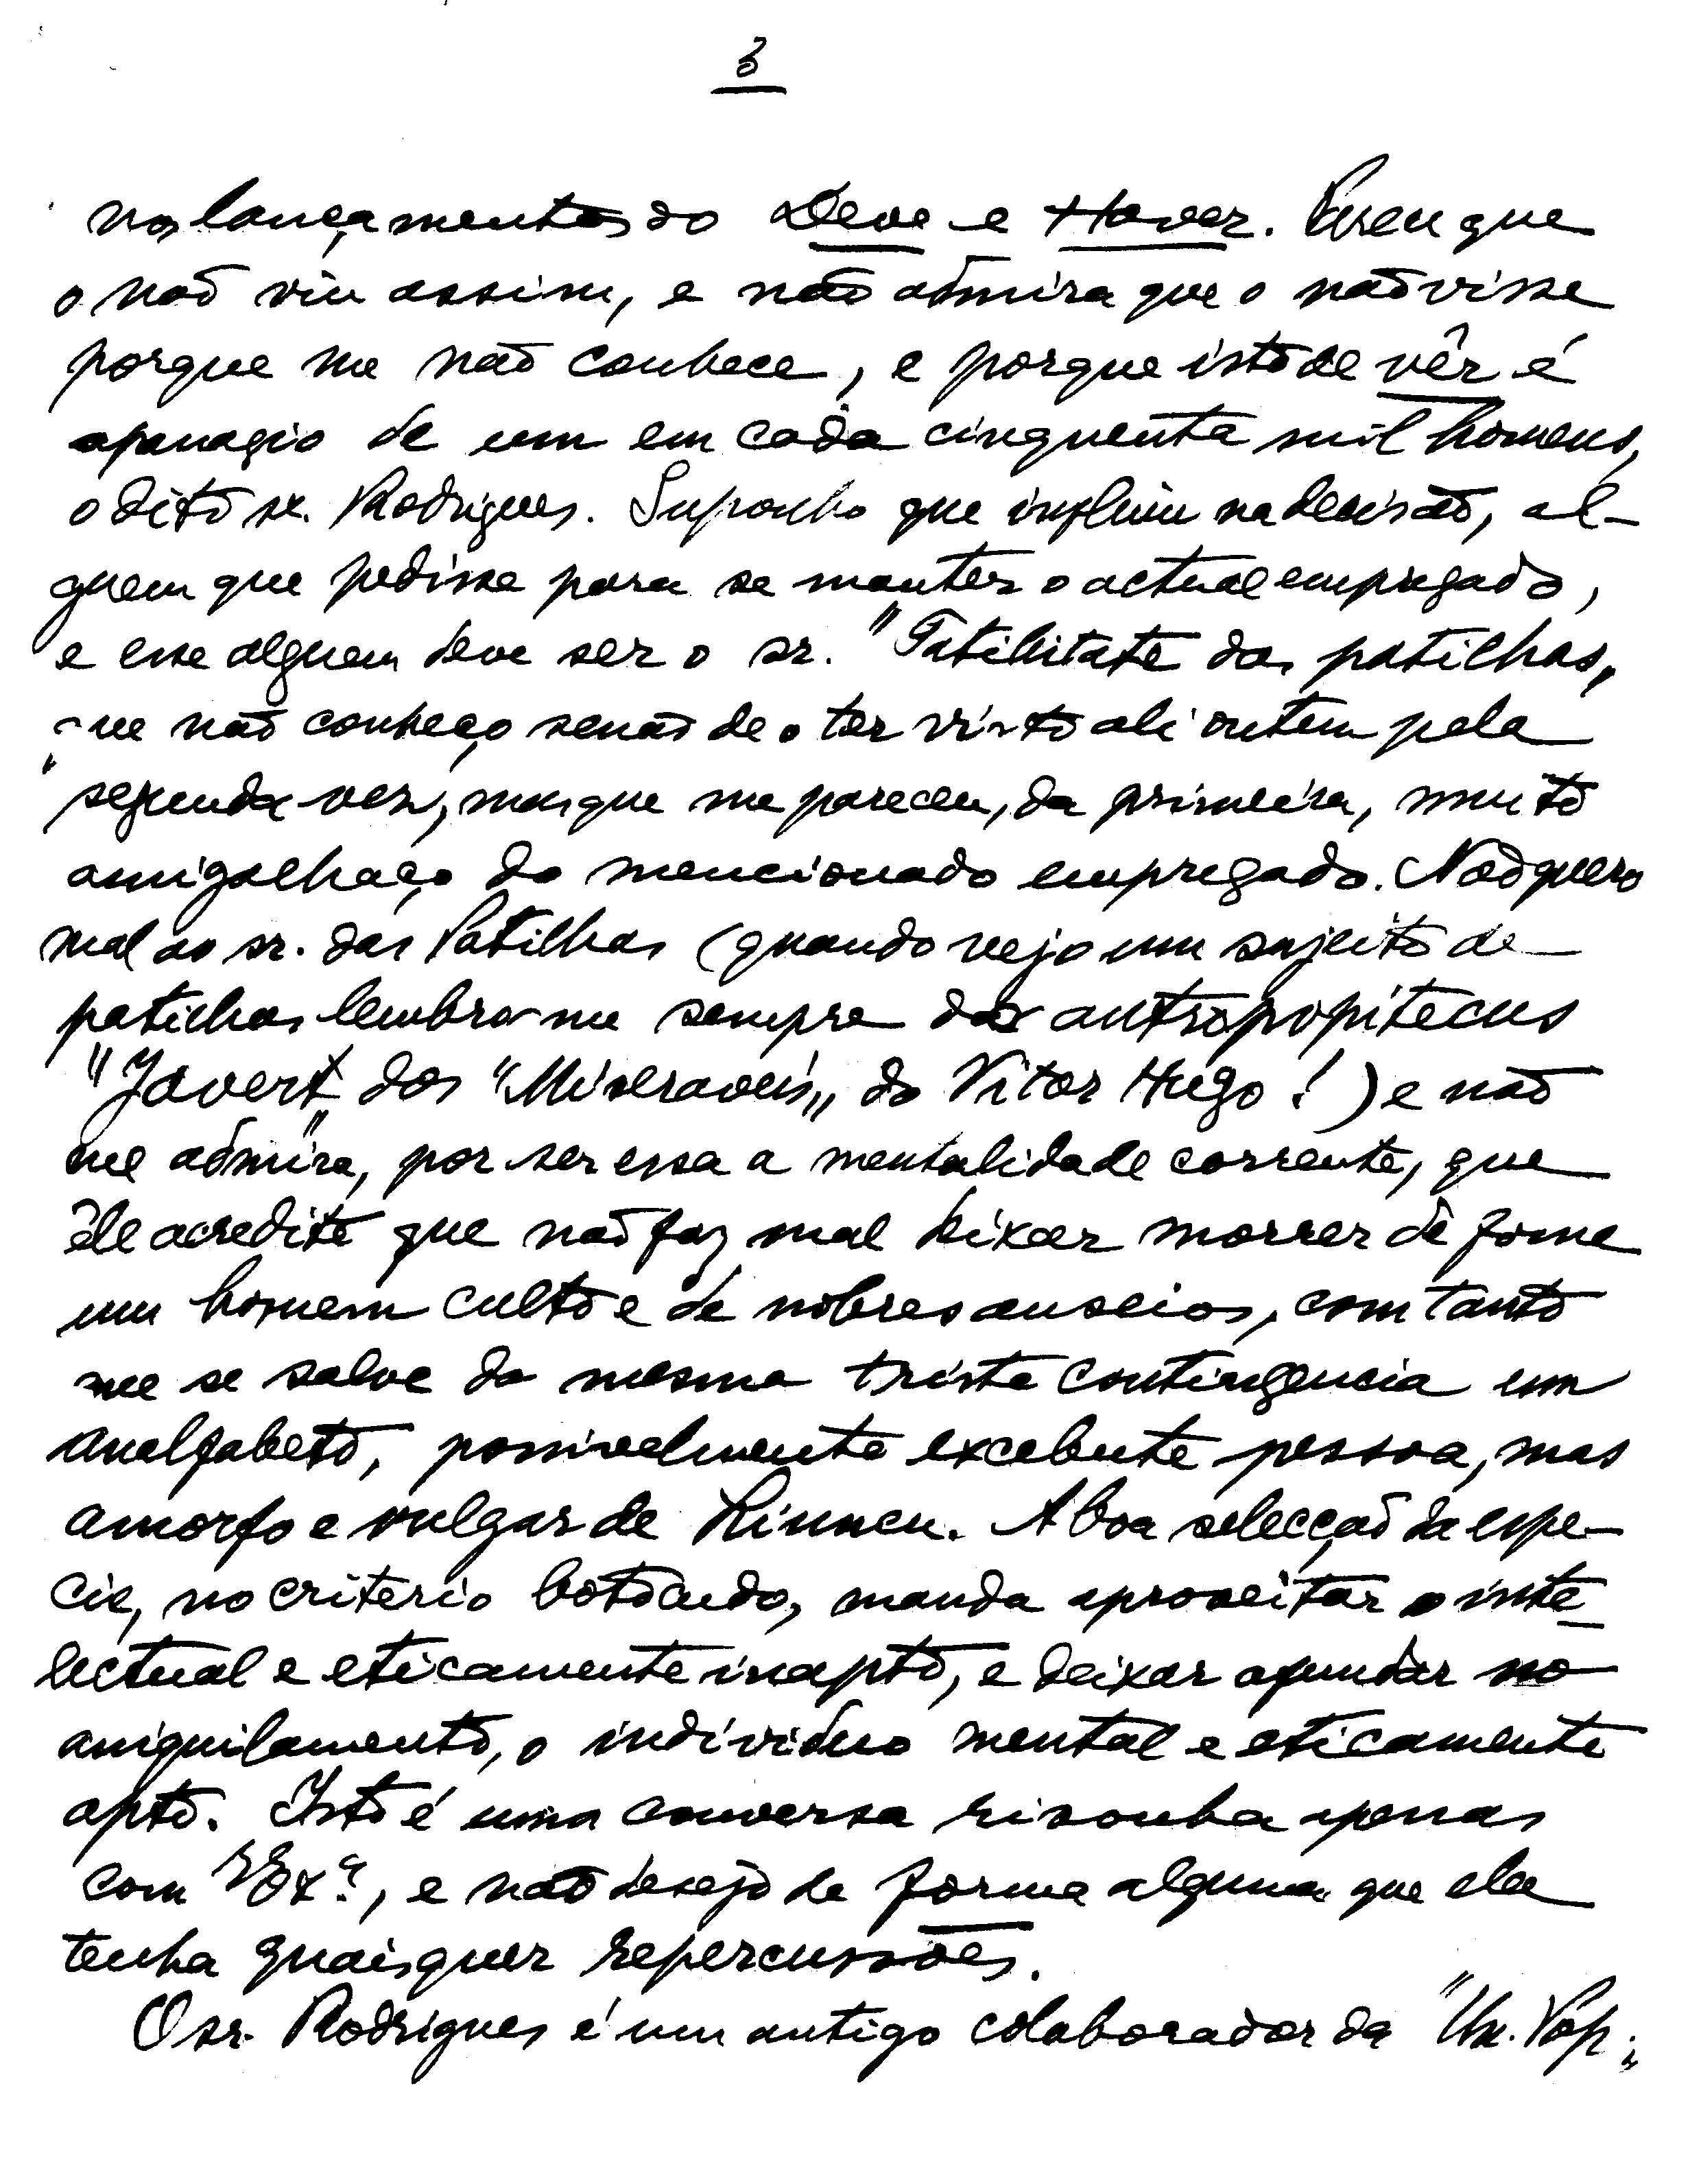 3
nos lançamentos do Deve e Haver. Pareu que
o não viu assim, e não admira que o não visse
porque me não conhece, e porque isto de vêr é
apanagio de um em cada cinquenta mil homens,
o dito sr. Rodrigues. Suponho que influiu na decisão, al-
guem que pedisse para se manter o actual empregado,
e esse alguem deve ser o sr. "Tatibitate das patilhas,,
que não conheço senão de o ter visto ali ontem pela
segunda vez, mas que me pareceu, da primeira, muito
amigalhaço do mencionado empregado. Não quero
mal ao sr. das Patilhas (quando vejo um sujeito de
patilhas lembra-me sempre do antropopitecus
"Javert,, dos "Miseraveis,, do Vitor Hugo!) e não
me admira, por ser essa a mentalidade corrente, que
êle acredite que não faz mal deixar morrer de fome
um homem culto e de nobres anseios, com tanto
que se salve da mesma triste contingencia um
analfabeto, possivelmente excelente pessoa, mas
amorfo e vulgar de Linneu. A boa selecção da espe-
cie, no criterio botocudo, manda aproveitar o inte-
lectual e eticamente inapto, e deixar afundar no
aniquilamento, o individuo mental e eticamente
apto. Isto é uma conversa risonha apenas
com V. Ex.ª, e não desejo de forma alguma que ela
tenha quaisquer repercussões.
O sr. Rodrigues é um antigo colaborador da "Un. Pop.,,